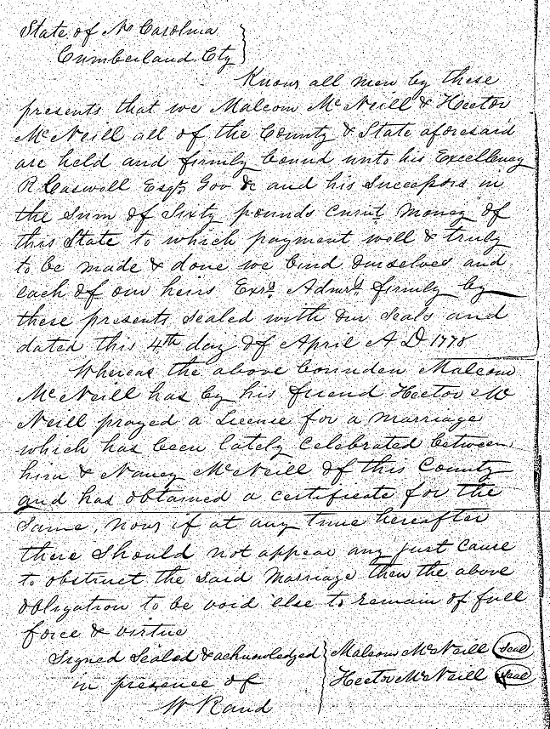 State of No Carolina
Cumberland Cty
Know all men by these
presents that we Malcom McNeill & Hector
McNeill all of the County & State aforesaid
are held and firmly bound unto his Excellency
R Caswell Esqr. Gov &c and his Successors in
the Sum of Sixty pounds Curnt. Money of
this State to which payment well & truly
to be made & done we bind ourselves and
each of our heirs Exrs. Admrs. firmly by
these presents sealed with our Seals and
dated this 4th day of April A D 1778
Whereas the above bounden Malcom
McNeill has by his friend Hector Mc
Neill prayed a License for a marriage
which has been lately Celebrated between
him & Nancy McNeill of this County
and has obtained a certificate for the
Same, now if at any time hereafter
there Should not appear any just cause
to obstruct the said Marriage then the above
obligation to be void else to remain of full
force & virtue
Signed Sealed & acknowledged Malcom McNeill Seal
in presence of Hector McNeill Seal
W Rand